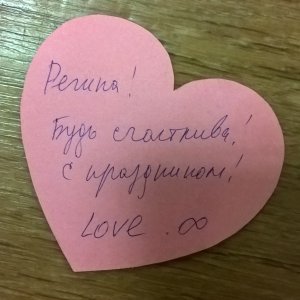 Регина!
Будь счастлива!
с праздником!
Love. ∞